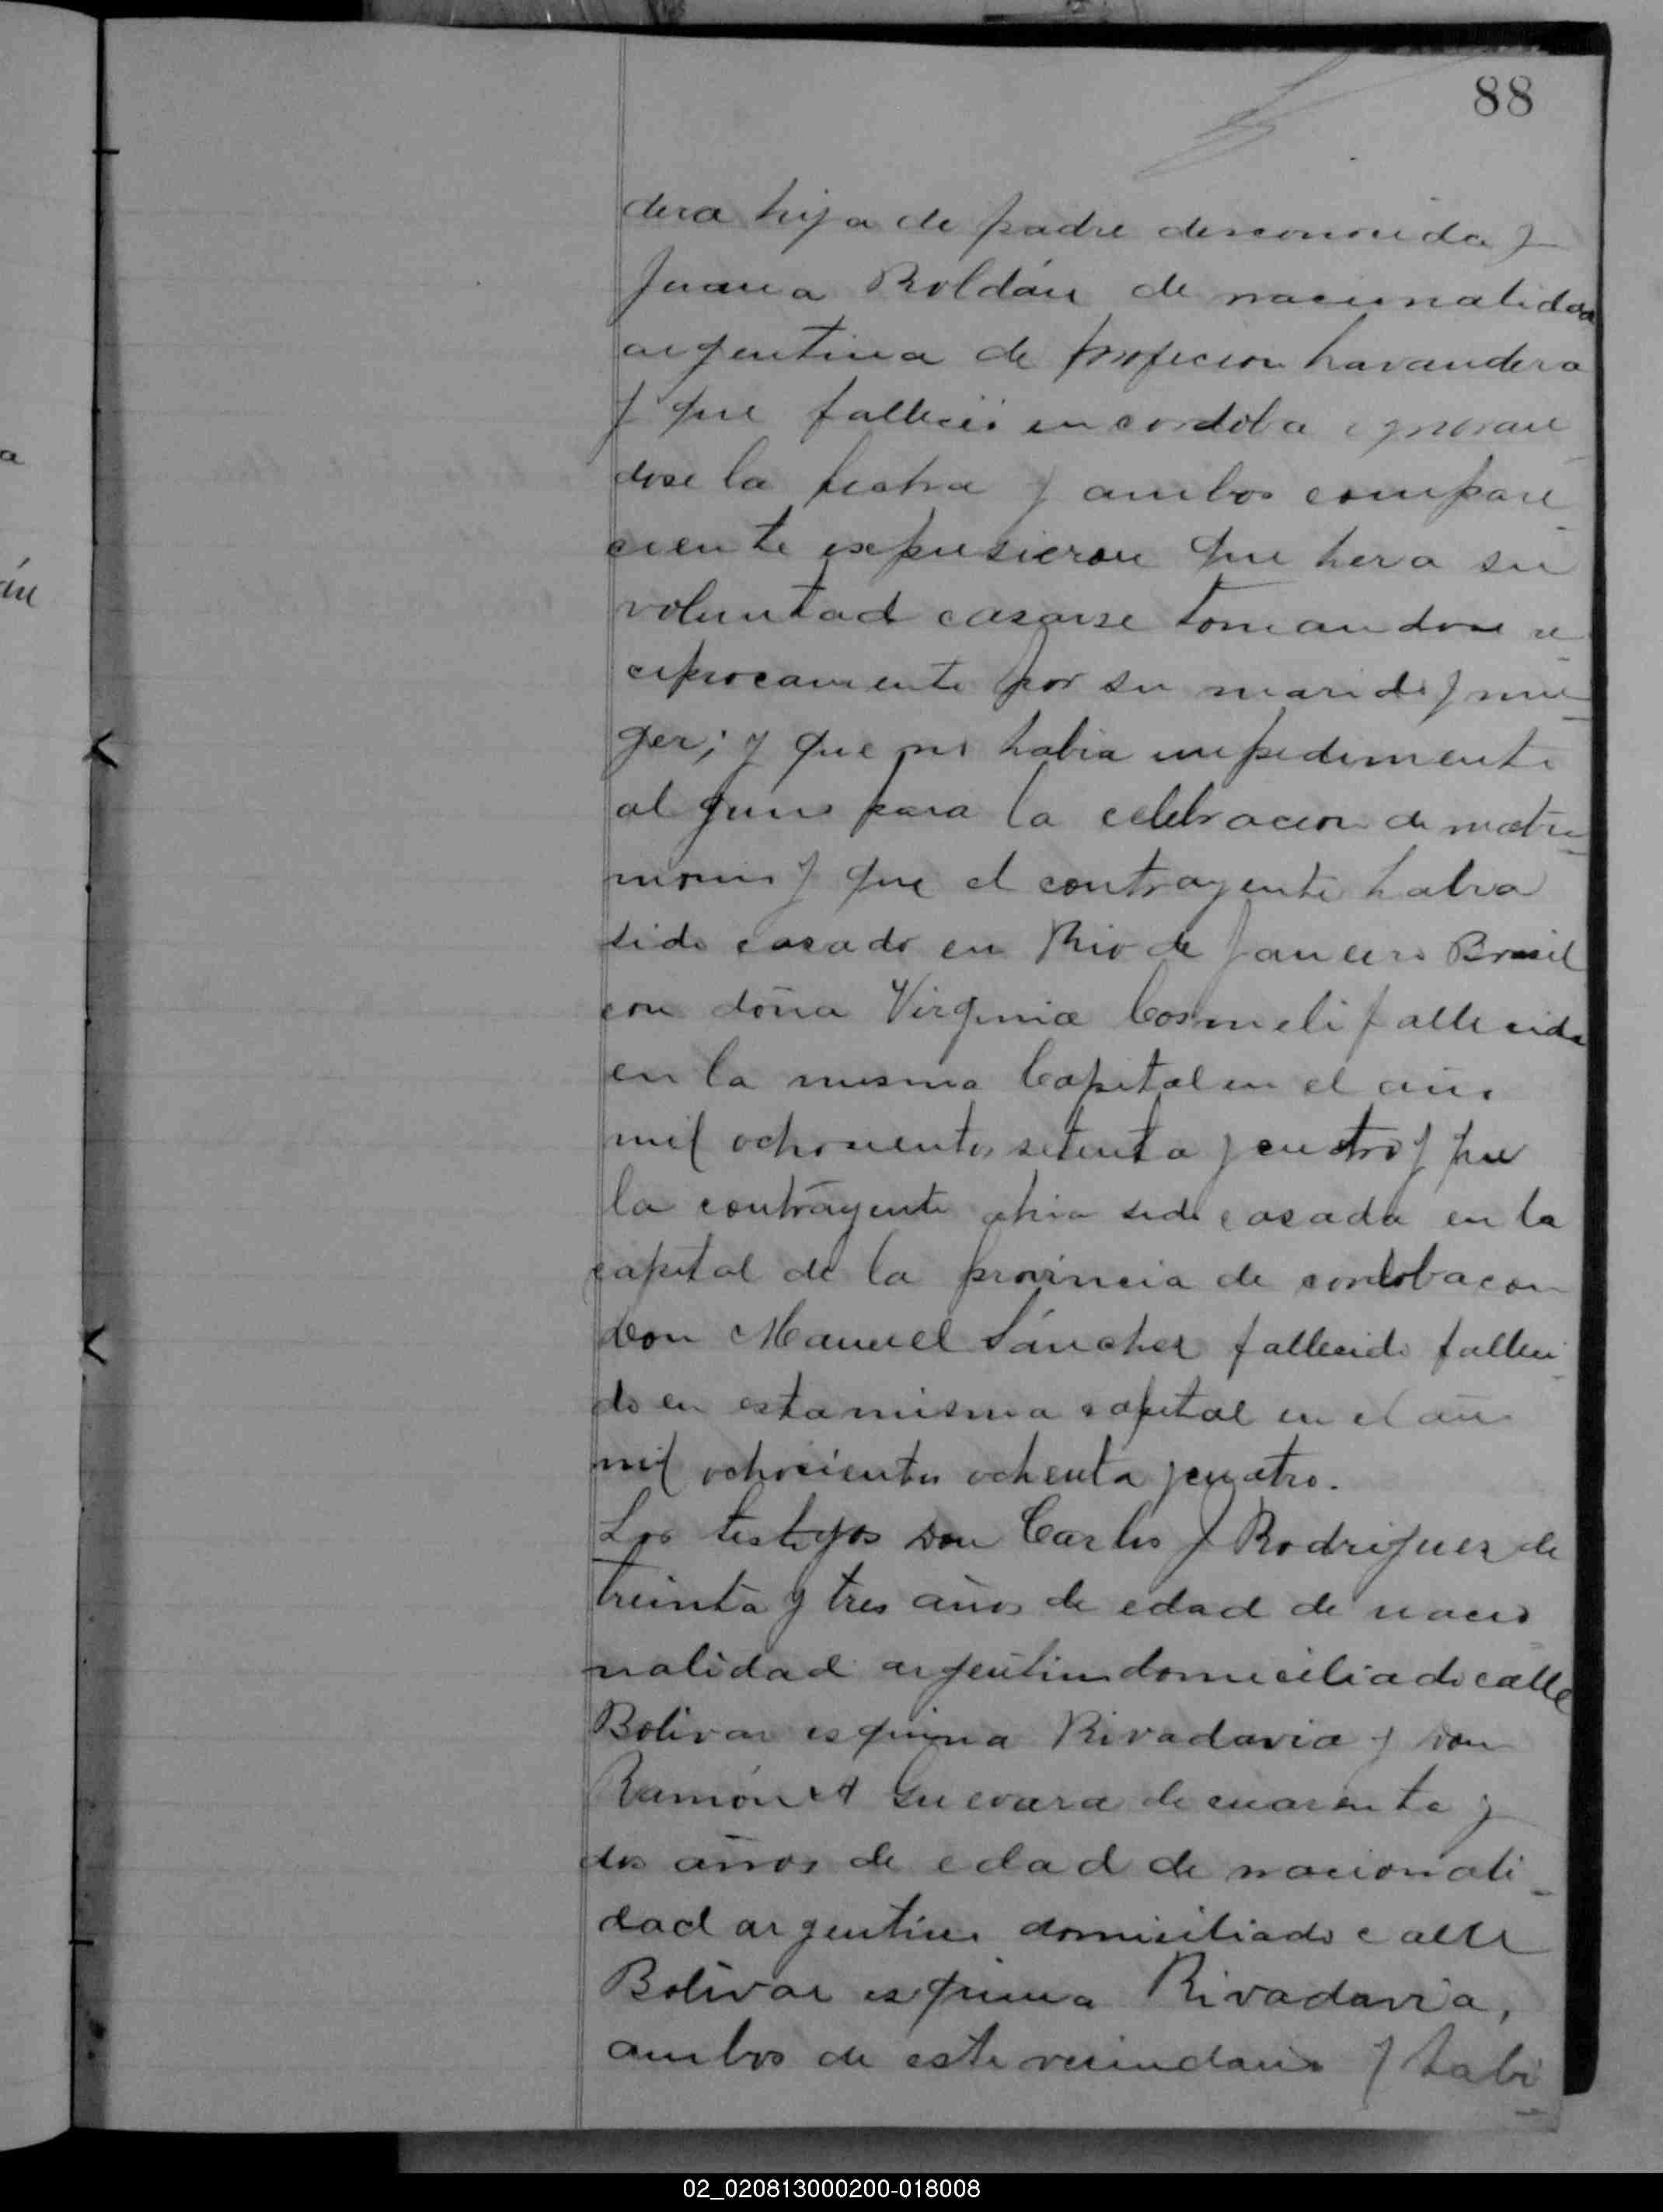 88
dera hija de padre desconocida y
Juana Roldán de nacionalidad
argentina de profecion lavandera
y que fallecio en cordoba ignoran
dose la fecha y ambos compare
ciente expusieron que hera su
voluntad casarse tomandose re
ciprocamente por su marido y mu
ger; y que no habia impedimento
alguno para la celebracion de matri
monio y que el contrayente habia
sido casado en Rio de Janeiro Brasil
con doña Virginia Cosmeli fallecida
en la misma Capital en el año
mil ochocientos setenta y cuatro y que
la contrayente ahia sido casada en la
capital de la provincia de cordoba con
don Manuel Sánchez fallecido falleci
do en esta misma capital en el año
mil ochocientos ochenta y cuatro.
Los testigos don Carlos J Rodriguez de
treinta y tres años de edad de nacio
nalidad argentino domiciliado calle
Bolivar esquina Rivadavia y don
Ramón A Guevara de cuarenta y
dos años de edad de nacionali
dad argentino domiciliado calle
Bolivar esquina Rivadavia,
ambos de este vecindario y habi
02_020813000200-018008